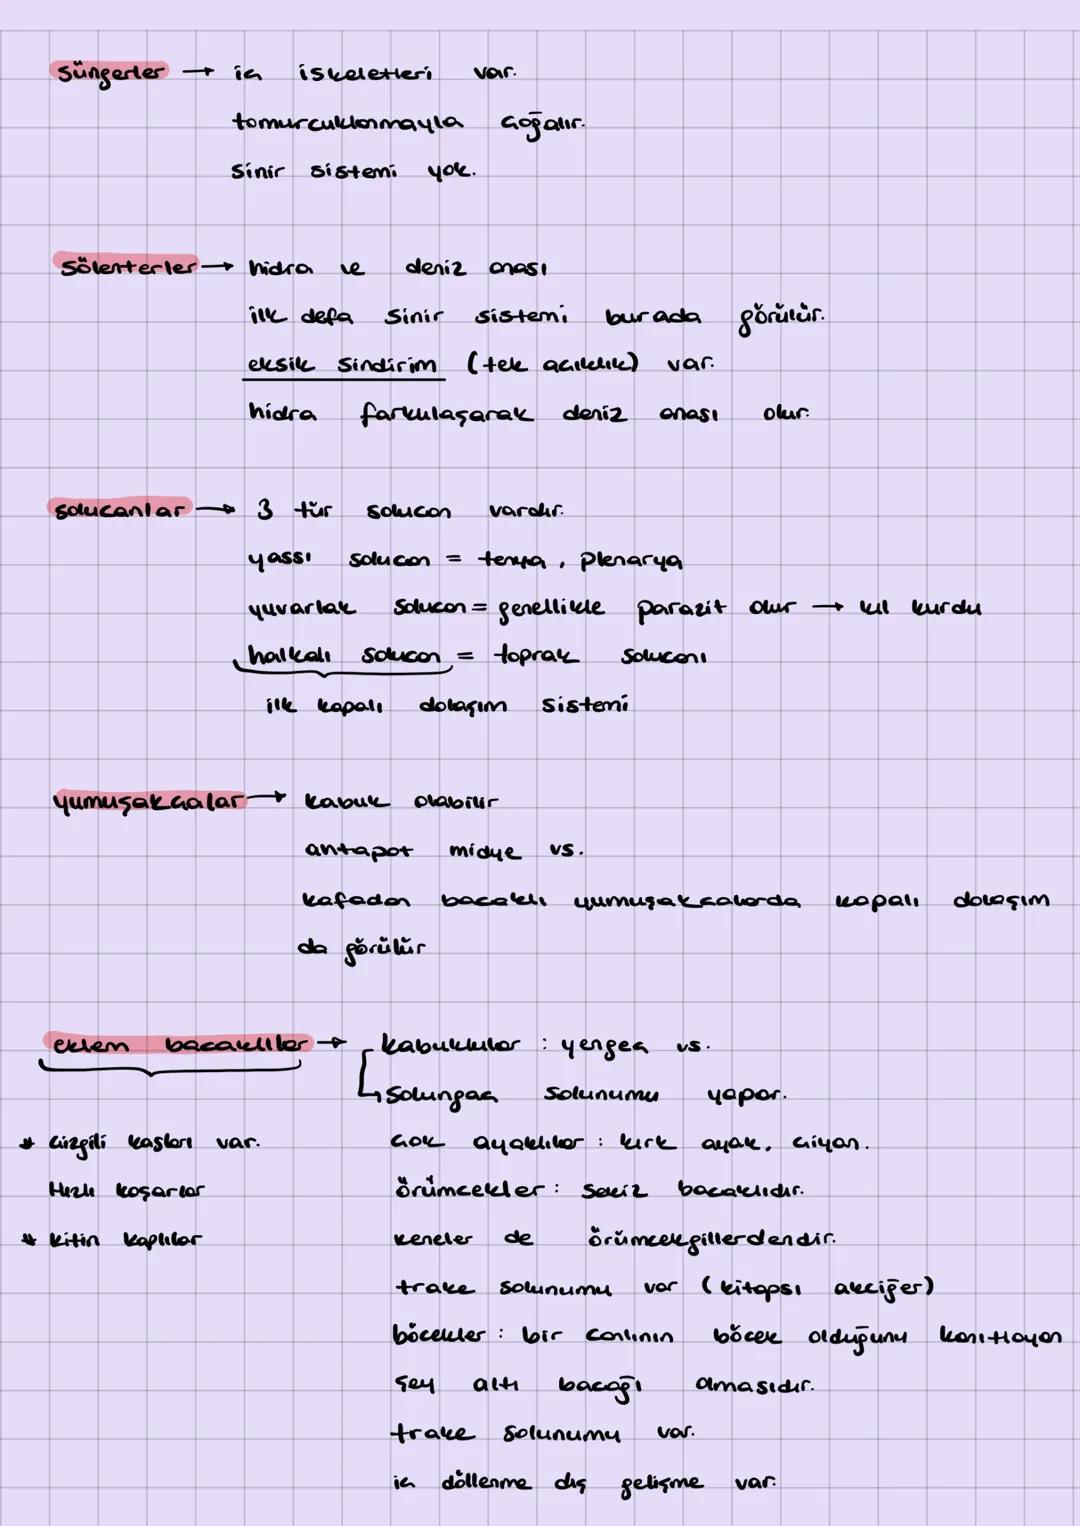 süngerler → iç iskeletleri var.
tomurcuklanmayla çoğalır.
sinir sistemi yok.
sölenterler → hidra ve deniz anası
ilk defa sinir sistemi burada görülür.
eksik sindirim (tek açıklık) var.
hidra farkulaşarak deniz anası olur.
solucanlar → 3 tür solucan vardır.
yassı solucan = tenya, plenarya
yuvarlak solucan = genellikle parazit olur → kıl kurdu
halkalı solucan = toprak solucanı
ilk kapalı dolaşım sistemi
yumuşakçalar → kabuk olabilir
antapot midye vs.
kafadan bacaklı yumuşakcalarda kapalı dolaşım
da görülür
eklem bacaklılar → kabuklular : yengeç vs.
↳ solungaç solunumu yapar.
* çizgili kasları var.
çok ayaklılar : kırk ayak, çiyan.
Hızlı koşarlar
örümcekler : sekiz bacaklıdır.
* kitin kaplılar
keneler de örümcekgillerdendir.
trake solunumu var (kitapsı akciğer)
böcekler : bir canlının böcek olduğunu kanıtlayan
şey altı bacağı olmasıdır.
trake solunumu var.
iç döllenme dış gelişme var.